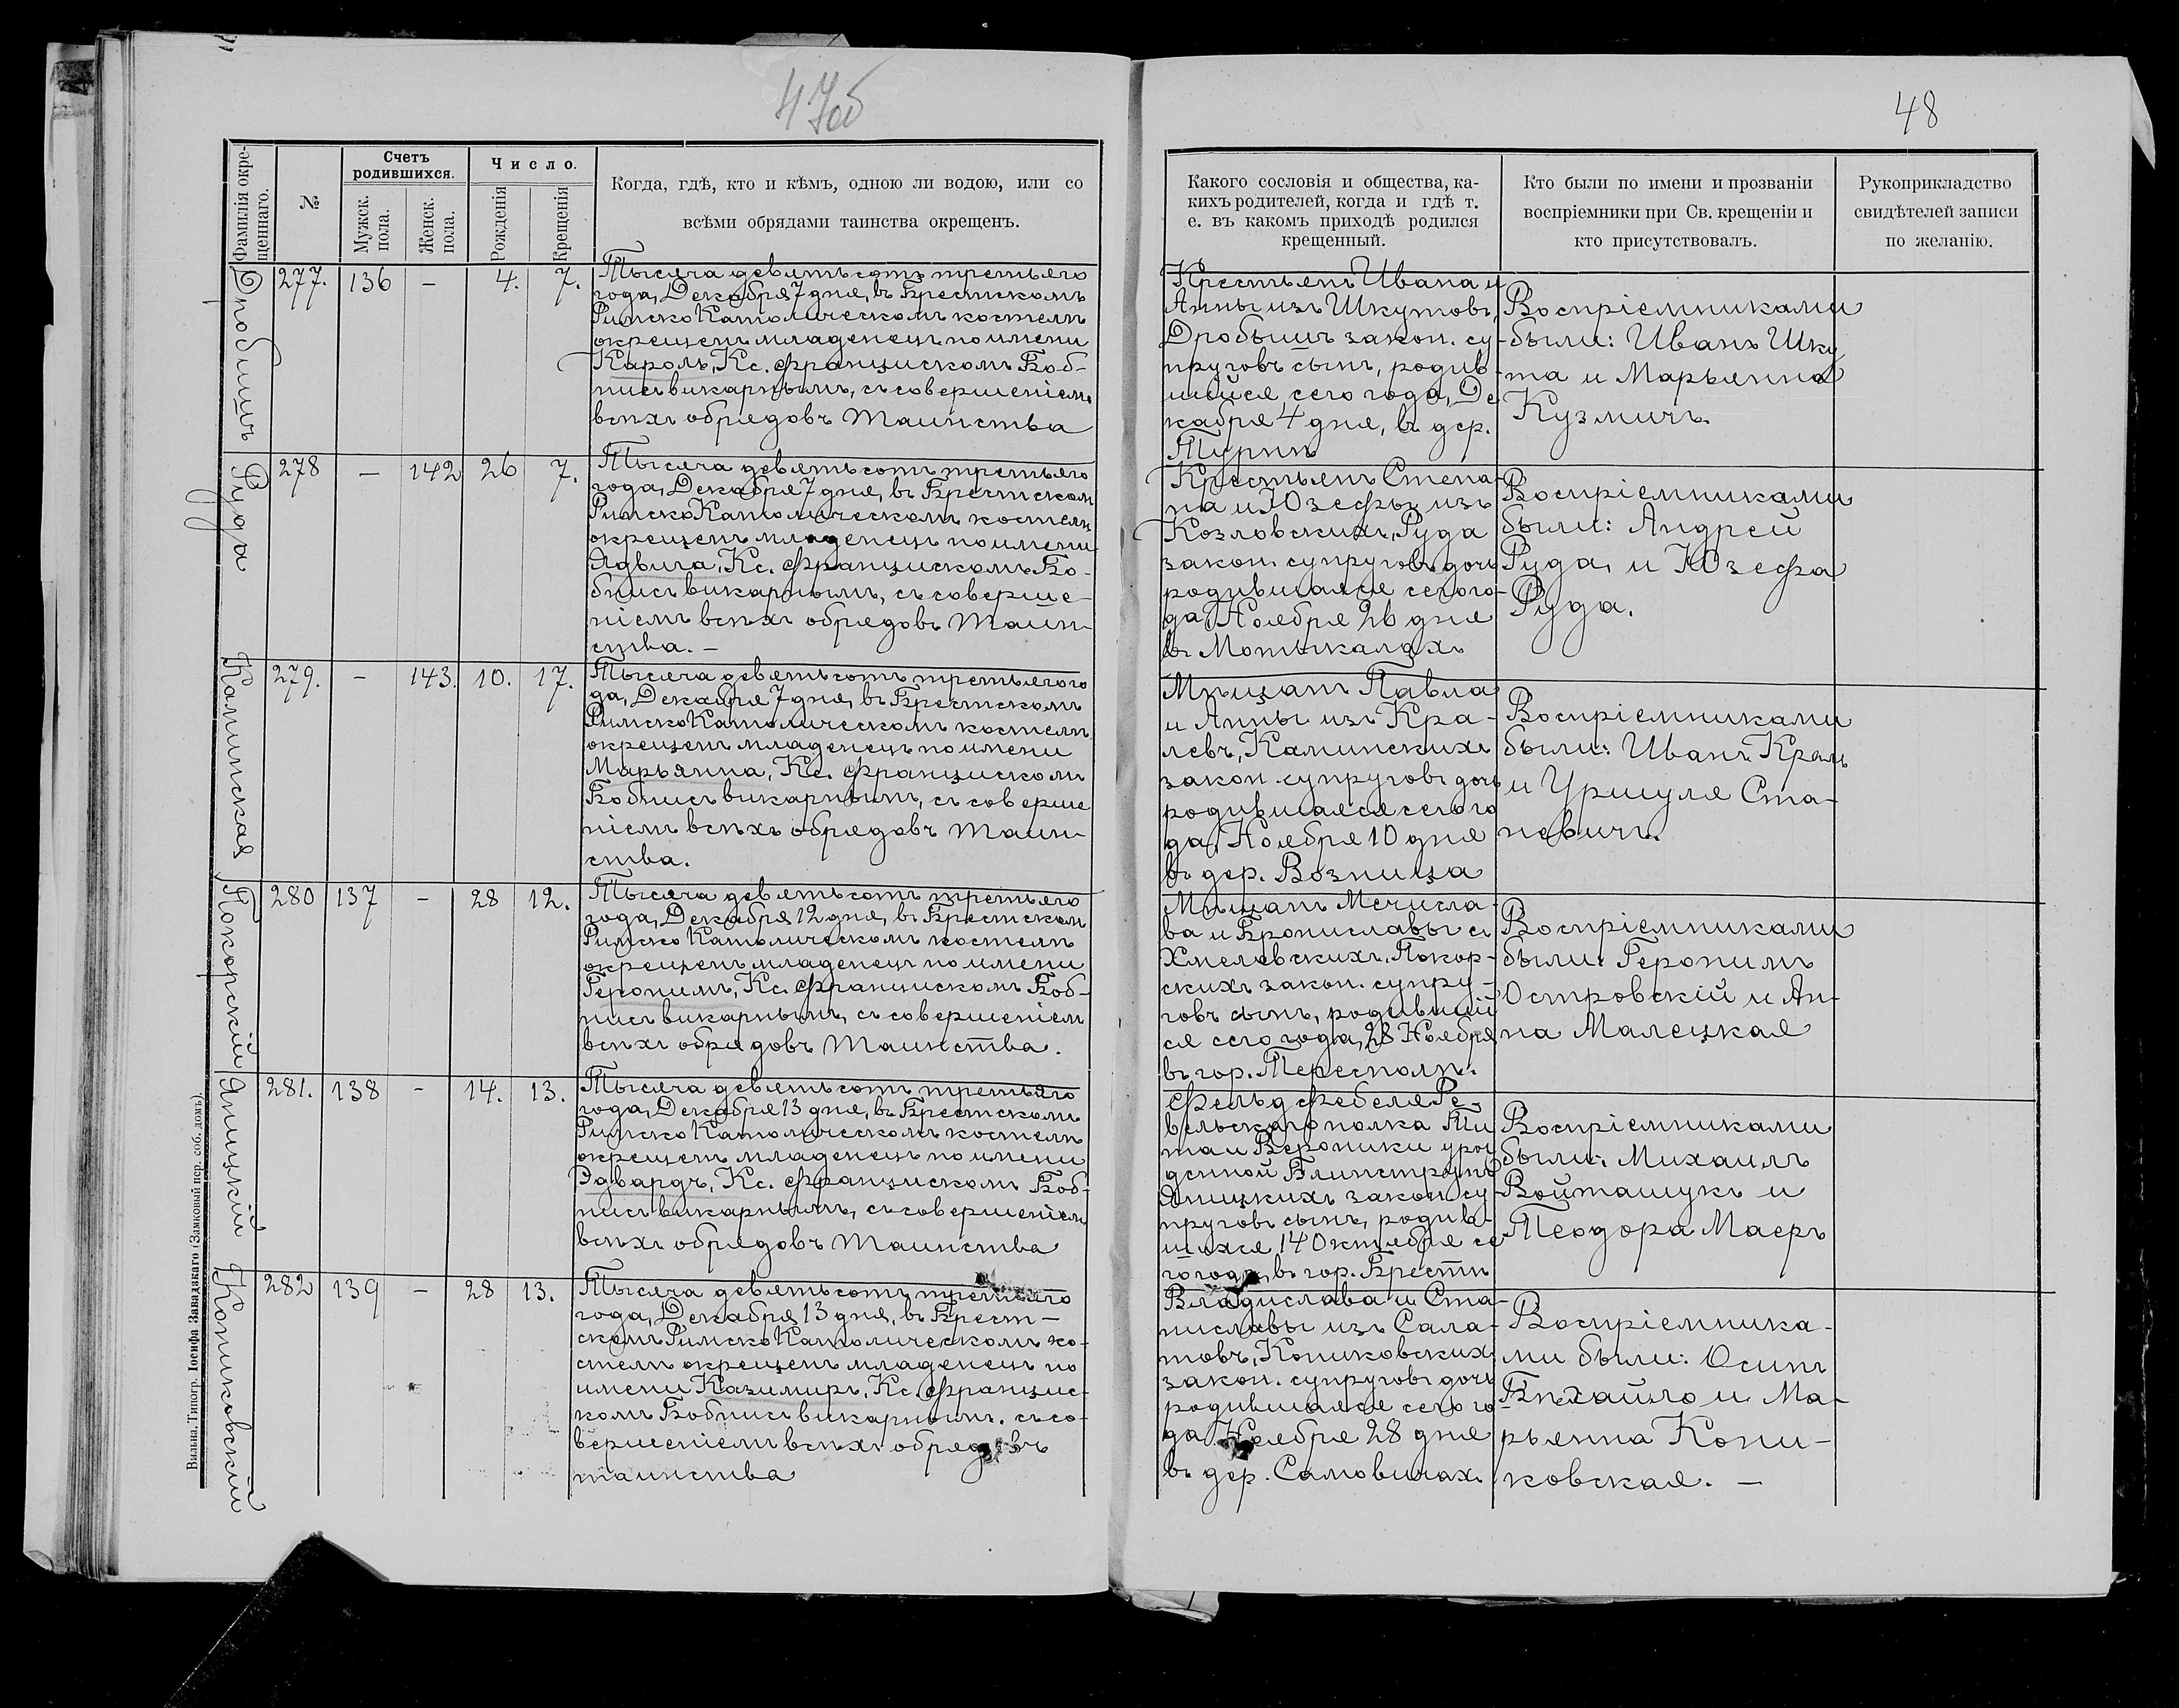 47об
48
Фамилія окре-
щеннаго.
№
Счетъ
родившихся.
Мужск.
пола.
Женск.
пола.
Число.
Рожденія
Крещенія
Когда, гдѣ, кто и кѣмъ, одною ли водою, или со
всѣми обрядами таинства окрещенъ.
Какого сословія и общества, ка-
кихъ родителей, когда и гдѣ т.
е. въ какомъ приходѣ родился
крещенный.
Кто были по имени и прозваніи
воспріемники при Св. крещеніи и
кто присутствовалъ.
Рукоприкладство
свидѣтелей записи
по желанію.
Дробишъ
277. 136 – 4. 7.
Тысяча девятьсотъ третьяго
года, Декабря 7 дня, въ Брестскомъ
Римско Католическомъ костелѣ
окрещенъ младенецъ по имени
Кароль, Кс. Францискомъ Боб-
нисъ викарнымъ, съ совершеніемъ
всѣхъ обрядовъ Таинства
Крестьянъ Ивана и
Анны изъ Шкутовъ,
Дробышъ закон. су-
пруговъ сынъ, родив-
шійся сего года, Де
кабря 4 дня, въ дер.
Турнѣ
Воспріемниками
были: Иванъ Шку
та и Марьянна
Кузмичъ.
Руда
278 – 142 26 7.
Тысяча девятьсотъ третьяго
года, Декабря 7 дня, въ Брестском
Римско Католическомъ костелѣ
окрещенъ младенецъ по имени
Ядвига, Кс. Францискомъ Бо-
бнисъ викарнымъ, съ соверше-
ніемъ всѣхъ обрядовъ Таин-
ства. –
Крестьянъ Степа-
на и Юзефы изъ
Козловскихъ, Руда
закон. супруговъ дочь
родившаяся сего го-
да Ноября 26 дня
въ Мотыкалахъ
Воспріемниками
были: Андрей
Руда, и Юзефа
Руда.
Каминская
279. – 143. 10. 17.
Тысяча девятьсотъ третьяго го
да, Декабря 7 дня, въ Брестскомъ
Римско Католическомъ костелѣ
окрещенъ младенецъ по имени
Марьянна, Кс. Францискомъ
Бобнисъ викарнымъ, съ соверше
ніемъ всѣхъ обрядовъ Таин-
ства.
Мѣщанъ Павла
и Анны изъ Кра-
левъ, Каминскихъ
закон. супруговъ дочь
родившаяся сего го
да, Ноября 10 дня
въ дер. Возница
Воспріемниками
были: Иванъ Краль
и Уршуля Ста-
невичъ.
Покорскій
280 137 – 28 12.
Тысяча девятьсотъ третьяго
года, Декабря 12 дня, въ Брестском
Римско Католическомъ костелѣ
окрещенъ младенецъ по имени
Геронимъ, Кс. Францискомъ Боб-
нисъ викарнымъ, съ совершеніем
всѣхъ обрядовъ Таинства.
Мѣщанъ Мечисла-
ва и Брониславы съ
Хмелевскихъ, Покор-
скихъ закон. супру-
говъ сынъ, родившій
ся сего года, 28 Ноября
въ гор. Тересполѣ.
Воспріемниками
были: Геронимъ
Островскій и Ан-
на Малецкая
Яницкій
281. 138 – 14. 13.
Тысяча девятьсотъ третьяго
года, Декабря 13 дня, въ Брестскомъ
Римско Католическомъ костелѣ
окрещенъ младенецъ по имени
Эдвардъ, Кс. Францискомъ Боб-
нисъ викарнымъ, съ совершеніем
всѣхъ обрядовъ Таинства
Фельдфебеля Ре-
вельского полка Ти
та и Вероники урож
денной
Яницкихъ закон. су-
пруговъ сынъ, родив-
шихся 14 Октября се
го года, въ гор. Брестѣ
Воспріемниками
были: Михаилъ
Войташукъ и
Теодора Маеръ
Кониковскій
282 139 – 28 13.
Тысяча девятьсотъ третьяго
года, Декабря 13 дня, въ Брест-
скомъ Римско Католическомъ ко-
стелѣ окрещенъ младенецъ по
имени Казимиръ, Кс. Францис-
комъ Бобнисъ викарнымъ, съ со-
вершеніемъ всѣхъ обрядовъ
таинства
Владислава и Ста-
ниславы изъ Сала-
товъ, Кониковских
закон. супруговъ дочь
родившаяся сего го-
да Ноября 28 дня
въ дер. Самовичах.
Воспріемника-
ми были: Осипъ
Бѣхайло и Ма-
рьянна Кони-
ковская. –
Вильна. Типогр. Іосифа Завадзкаго (Замковый пер. соб. домъ).